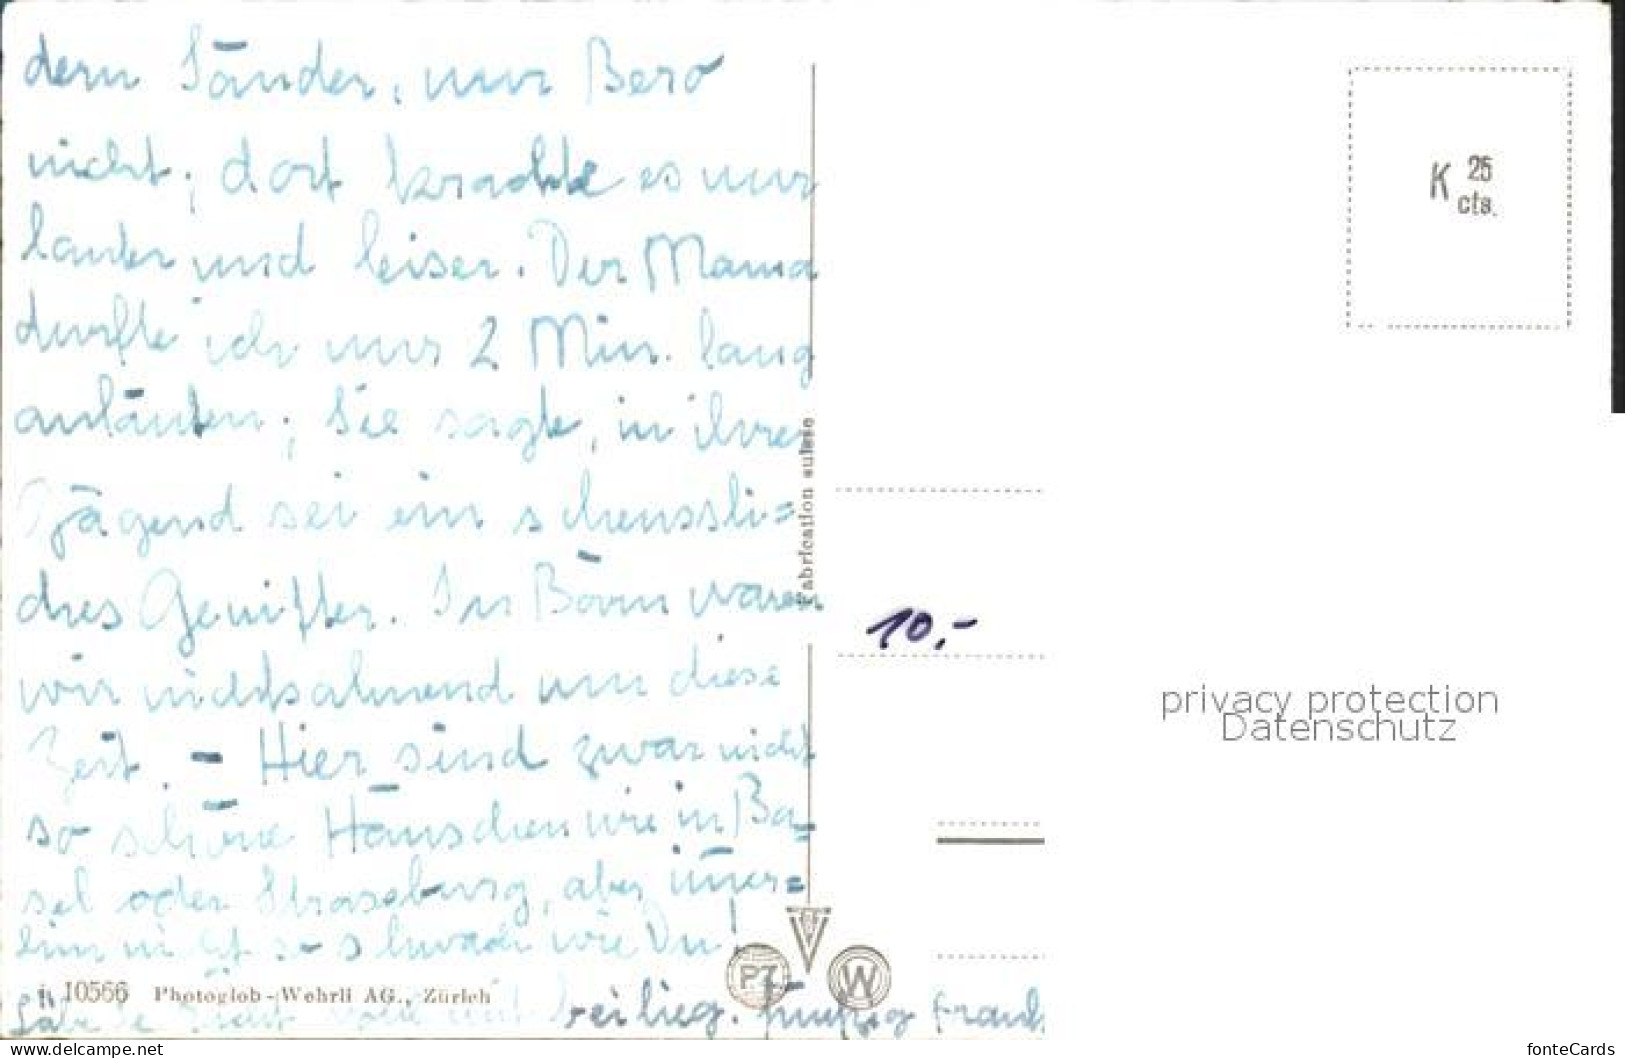 dern Sänder, nur Bero
nicht; dort krachte es nur
lauter und leiser. Der Mama
durfte ich nur 2 Min. lang
anläuten; Sie sagte, in ihrer
Gägend sei ein scheussli=
ches Gewitter. In Bärn waren
wir nichtsahnend um diese
Zeit. - Hier sind zwar nicht
so schöne Häuschen wie in Ba=
sel oder Strassburg, aber imer=
hin nicht so schwach wie Du!
beilieg. fünfzig Frank
10566 Photoglob-Wehrli AG., Zürich
Fabrication suisse
PZ
W
K 25 cts.
10.-
privacy protection
Datenschutz
www.delcampe.net
fonteCards